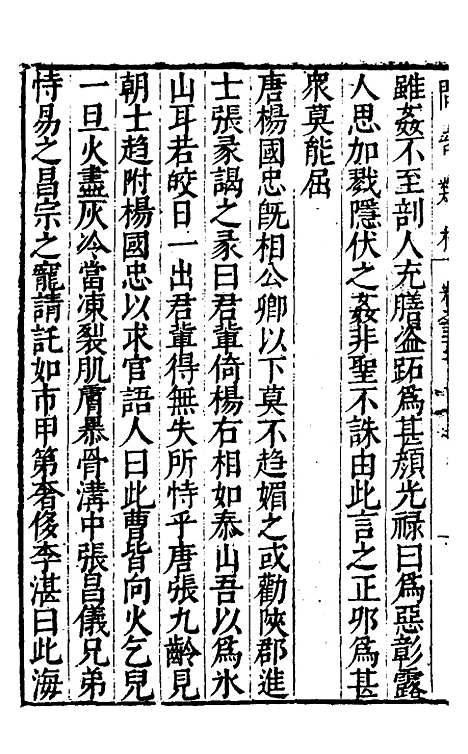 雖姦不至剖人充膳盜跖爲甚顏光祿曰爲惡彰露
人思加戮隱伏之姦非聖不誅由此言之正卯爲甚
衆莫能屈
唐楊國忠旣相公卿以下莫不趋媚之或勸陝郡進
士張彖謁之彖曰君輩倚楊右相如泰山吾以爲氷
山耳若皎日一出君輩得無失所恃乎唐張九齡見
朝士趋附楊國忠以求官語人曰此曹皆向火乞兒
一旦火盡灰冷當凍裂肌膚暴骨溝中張昌儀兄弟
恃易之昌宗之寵請託如市甲第奢侈李湛曰此海